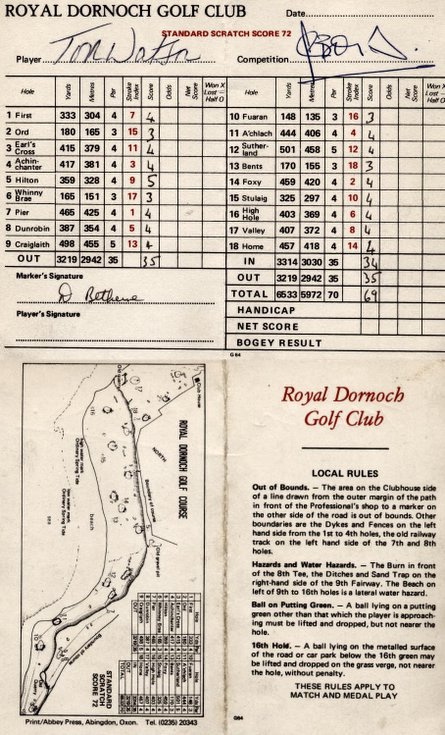 ROYAL DORNOCH GOLF CLUB Date
STANDARD SCRATCH SCORE 72
Player Tom Watson Competition
Hole Yards Metres Par Stroke Index Score Odds Nett Score Won X Lost — Half O
1 First 333 304 4 7 4
2 Ord 180 165 3 15 3
3 Earl's Cross 415 379 4 11 4
4 Achinchanter 417 381 4 3 4
5 Hilton 359 328 4 9 5
6 Whinny Brae 165 151 3 17 3
7 Pier 465 425 4 1 4
8 Dunrobin 387 354 4 5 4
9 Craiglaith 498 455 5 13 4
OUT 3219 2942 35 35
Marker's Signature
D Bethune
Player's Signature
Hole Yards Metres Par Stroke Index Score Odds Nett Score Won X Lost — Half O
10 Fuaran 148 135 3 16 3
11 A'chlach 444 406 4 4 4
12 Sutherland 501 458 5 12 4
13 Bents 170 155 3 18 3
14 Foxy 459 420 4 2 4
15 Stulaig 325 297 4 10 4
16 High Hole 403 369 4 6 4
17 Valley 407 372 4 8 4
18 Home 457 418 4 14 4
IN 3314 3030 35 34
OUT 3219 2942 35 35
TOTAL 6533 5972 70 69
HANDICAP
NET SCORE
BOGEY RESULT
G 84
ROYAL DORNOCH GOLF COURSE
Club House
NORTH
Boundary of course
Old gravel pit
beach
sea
High water mark
Ordinary Spring Tide
Low water mark
Ordinary Spring Tide
Boundary of course
STANDARD
SCRATCH
SCORE 72
Print/Abbey Press, Abingdon, Oxon. Tel. (0235) 20343
Royal Dornoch
Golf Club
LOCAL RULES
Out of Bounds. — The area on the Clubhouse side
of a line drawn from the outer margin of the path
in front of the Professional's shop to a marker on
the other side of the road is out of bounds. Other
boundaries are the Dykes and Fences on the left
hand side from the 1st to 4th holes, the old railway
track on the left hand side of the 7th and 8th
holes.
Hazards and Water Hazards. — The Burn in front
of the 8th Tee, the Ditches and Sand Trap on the
right-hand side of the 9th Fairway. The Beach on
left of 9th to 16th holes is a lateral water hazard.
Ball on Putting Green. — A ball lying on a putting
green other than that which the player is approach-
ing must be lifted and dropped, but not nearer the
hole.
16th Hole. — A ball lying on the metalled surface
of the road or car park below the 16th green may
be lifted and dropped on grass verge, not nearer
the hole, without penalty.
THESE RULES APPLY TO
MATCH AND MEDAL PLAY
G84